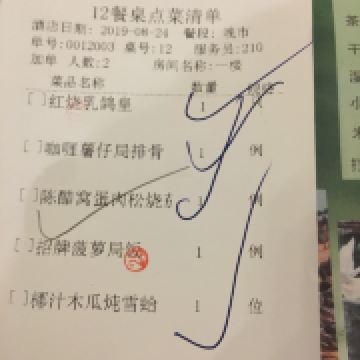 12餐桌点菜清单
酒店日期: 2019-08-24 餐段: 晚市
单号:0012003 桌号:12 服务员:210
加单 人数:2 房间名称:一楼
菜品名称 数量
[ ]红烧乳鸽皇 1 只
[ ]咖喱薯仔局排骨 1 例
[ ]陈醋窝蛋肉松烧茄 1 例
[ ]招牌菠萝局饭 1 例
[ ]椰汁木瓜炖雪蛤 1 位